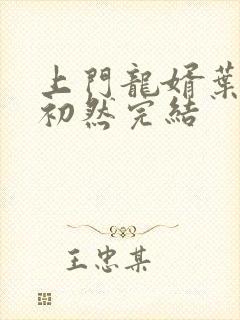 上門龍婿葉
初然完結
王忠某